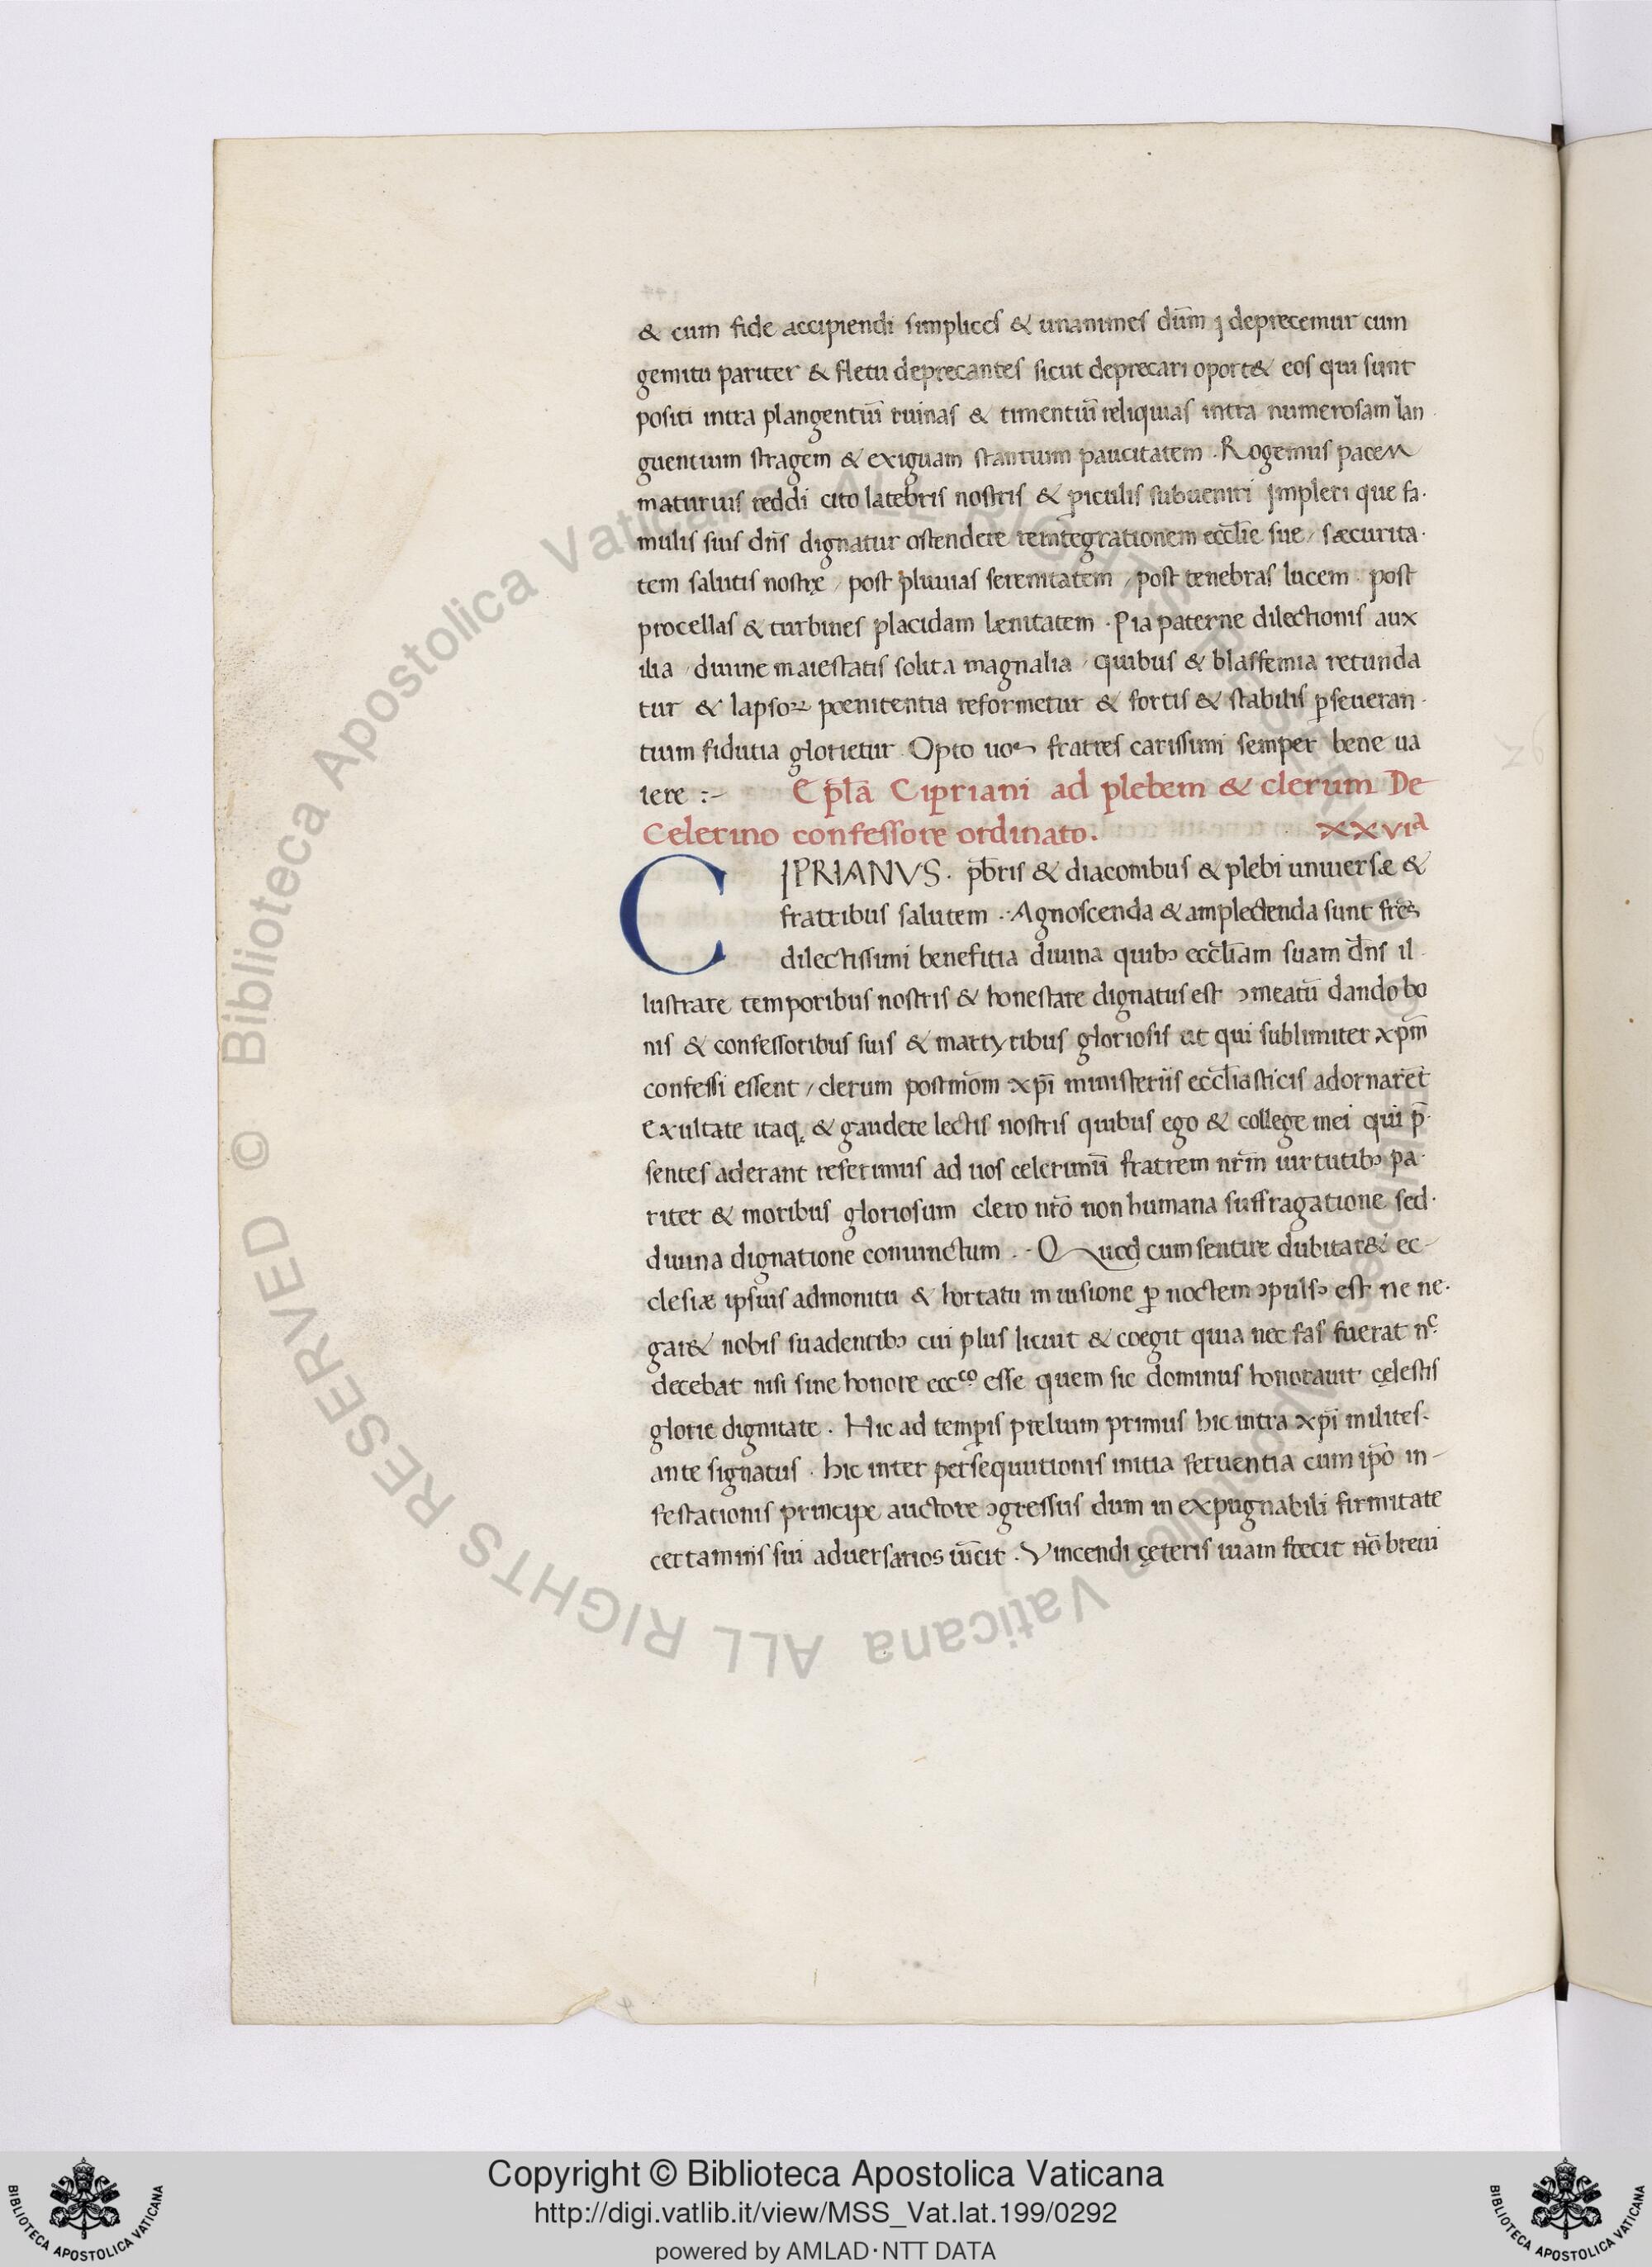 & cum fide accipiendi simplices & unanimes dum̄ ꝫ deprecemur cum
gemitu pariter & fletu deprecantes sicut deprecari oport& eos qui sunt
positi intra plangentiū ruinas & timentiū reliquias intra numerosam lan
guentium stragem & exiguam stantium paucitatem . Rogemus pacem
maturius reddi cito latebris nostris & ꝑiculis subueniri Impleri que fa.
mulis suis dn̄s dignatur ostendere reintegrationem eccl̄ie sue / sæcurita.
tem salutis nostrę / post pluuias serenitatem / post tenebras lucem . post
procellas & turbines placidam lænitatem . Pia paterne dilectionis aux
ilia / diuine maiestatis solita magnalia / quibus & blasfemia retunda
tur & lapsoꝝ poenitentia reformetur & fortis & stabilis ꝑseueran.
tium fidutia glorietur . Opto uos fratres carissimi semper bene ua
lere :~ Epl̄a Cipriani ad plebem & clerum De
Celerino confessore ordinato. xxvia
CIPRIANVS . pb̄ris & diaconibus & plebi uniuersæ &
fratribus salutem .. Agnoscenda & amplectenda sunt fr̄es
dilectissimi benefitia diuina quibꝰ eccl̄iam suam dn̄s il
lustrare temporibus nostris & honestare dignatus est ꝯmeatū dando bo
nis & confessoribus suis & martyribus gloriosis ut qui sublimiter xpm̄
confessi essent / clerum postmōm xpī ministeriis eccl̄iasticis adornaret
Exultate itaqꝫ & gaudete lectis nostris quibus ego & college mei qui p̄.
sentes aderant referimus ad uos celerinū fratrem nr̄m uirtutibꝰ pa.
riter & moribus gloriosum clero nr̄o non humana suffragatione sed.
diuina dignatione coniunctum .- Quod cum sentire dubitar& ec-
clesiæ ipsius admonitu & hortatu in uisione ꝑ noctem ꝯpulsꝰ est ne ne.
gar& nobis suadentibꝰ cui plus licuit & coegit quia nec fas fuerat nc̄
decebat nisi sine honore ecc̄co esse quem sic dominus honorauit cęlestis
glorie dignitate . Hic ad tempis prelium primus hic intra xpī milites.
ante signatus . hic inter persequutionis initia feruentia cum ip̄o in-
festationis principe auctore ꝯgressus dum in expugnabili firmitate
certaminis sui aduersarios uīcit . Vincendi cęteris uiam fœcit nō breui
Copyright © Biblioteca Apostolica Vaticana
http://digi.vatlib.it/view/MSS_Vat.lat.199/0292
powered by AMLAD·NTT DATA
BIBLIOTECA APOSTOLICA VATICANA
BIBLIOTECA APOSTOLICA VATICANA
© Biblioteca Apostolica Vaticana ALL RIGHTS RESERVED
© Biblioteca Apostolica Vaticana ALL RIGHTS RESERVED